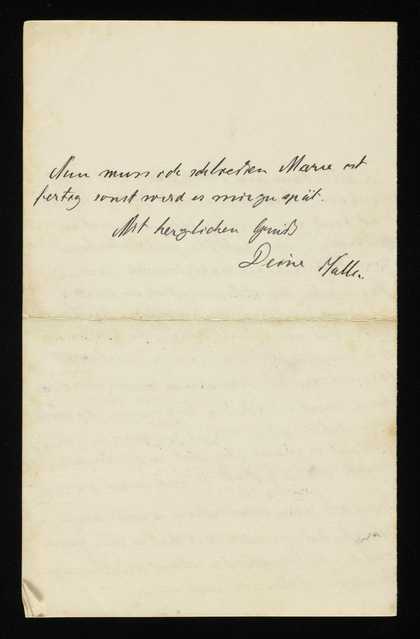 Nun muss ich schließen Marie ist
fertig sonst wird es mir zu spät.
Mit herzlichen Gruß
Deine